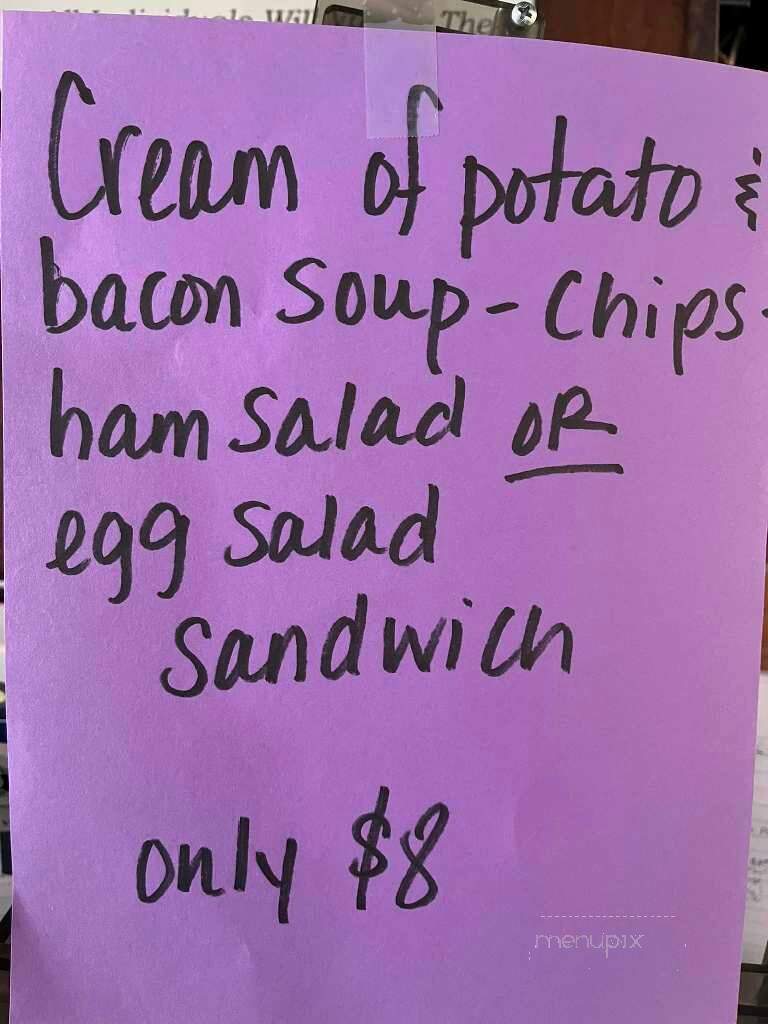 All Individuals Will
The
Cream of potato &
bacon soup - Chips -
ham salad OR
egg salad
sandwich
only $8
menupix